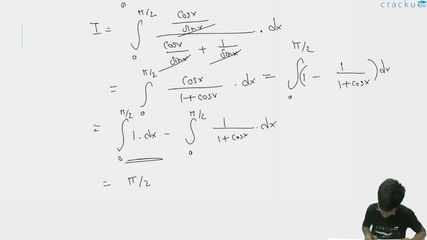 cracku
I = ∫₀^π/2 (cosx/sinx)/(cosx/sinx + 1/sinx) . dx
= ∫₀^π/2 cosx/(1+cosx) . dx = ∫₀^π/2 (1 - 1/(1+cosx)) dx
= ∫₀^π/2 1. dx - ∫₀^π/2 1/(1+cosx) . dx
= π/2